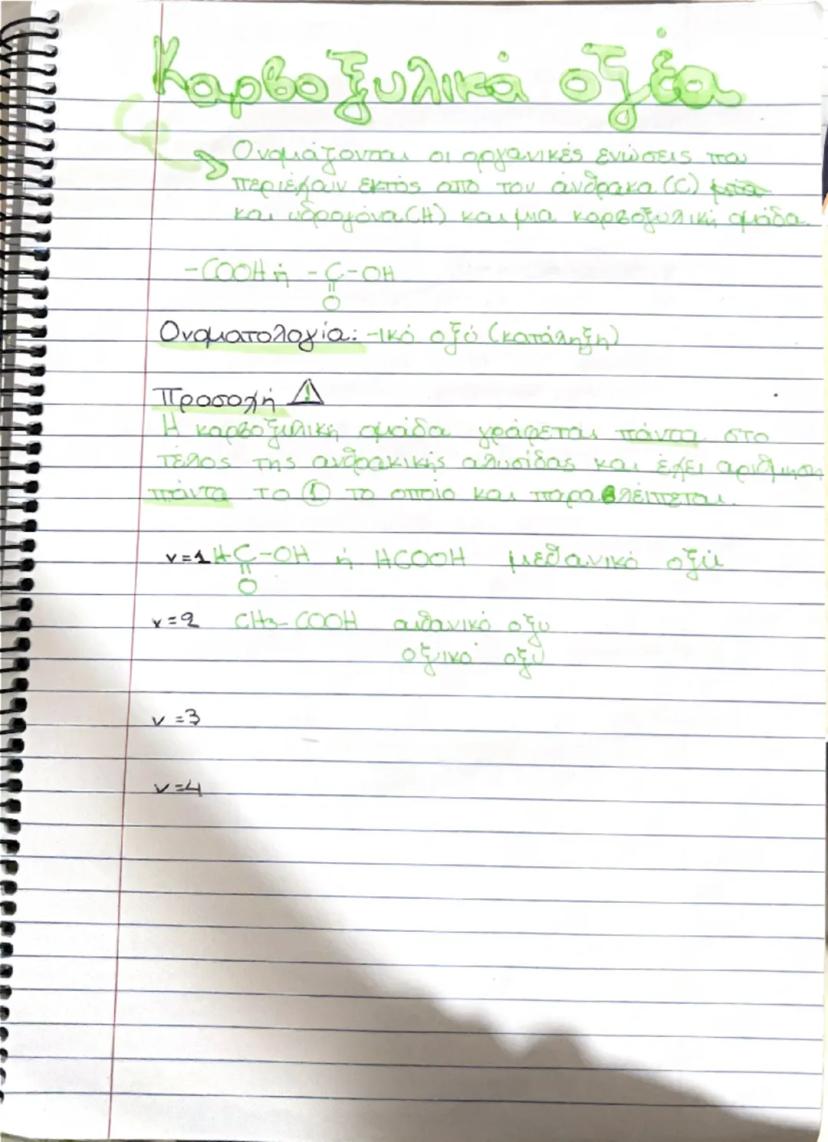 Καρβοξυλικά οξέα
Ονομάζονται οι οργανικές ενώσεις που
περιέχουν εκτός από τον άνθρακα (C)
και υδρογόνο (H) και μια καρβοξυλική ομάδα.
-COOH ή -C-OH
=
O
Ονοματολογία: -ικό οξύ (κατάληξη)
Προσοχή ⚠
Η καρβοξυλική ομάδα γράφεται πάντα στο
τέλος της ανθρακικής αλυσίδας και έχει αρίθμηση
πάντα το ① το οποίο και παραβλέπεται.
v=1 H-C-OH ή HCOOH μεθανικό οξύ
=
O
v=2 CH3-COOH αιθανικό οξύ
οξικό οξύ
v=3
v=4